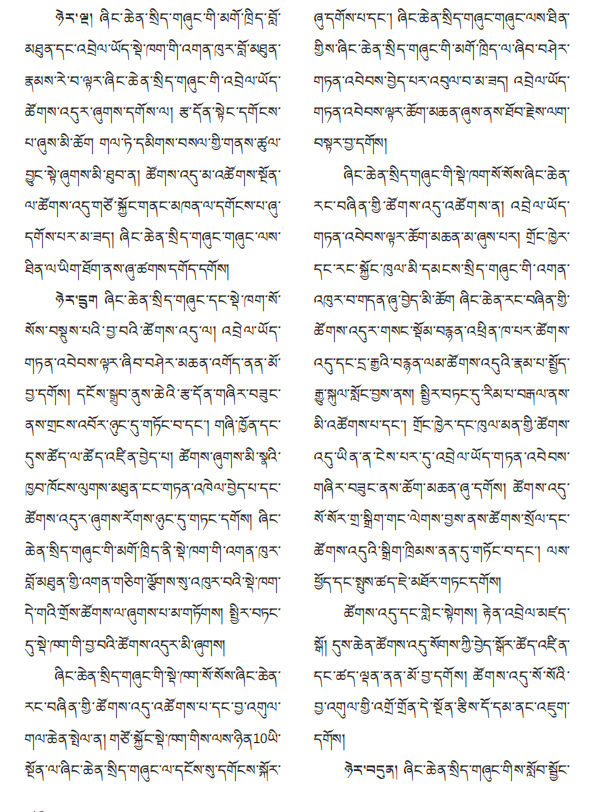 ཉེར་ལྔ། ཞིང་ཆེན་སྲིད་གཞུང་གི་མགོ་ཁྲིད་བློ་
མཐུན་དང་འབྲེལ་ཡོད་སྡེ་ཁག་གི་འགན་ཁུར་བློ་མཐུན་
རྣམས་རེ་བ་ལྟར་ཞིང་ཆེན་སྲིད་གཞུང་གི་འབྲེལ་ཡོད་
ཚོགས་འདུར་ཞུགས་དགོས་ལ། རྩ་དོན་སྟེང་དགོངས་
པ་ཞུས་མི་ཆོག གལ་ཏེ་དམིགས་བསལ་གྱི་གནས་ཚུལ་
བྱུང་སྟེ་ཞུགས་མི་ཐུབ་ན། ཚོགས་འདུ་མ་འཚོགས་སྔོན་
ལ་ཚོགས་འདུ་གཙོ་སྐྱོང་གནང་མཁན་ལ་དགོངས་པ་ཞུ་
དགོས་པར་མ་ཟད། ཞིང་ཆེན་སྲིད་གཞུང་གཞུང་ལས་
ཐིན་ལ་ཡིག་ཐོག་ནས་ཞུ་ཚགས་དགོད་དགོས།
ཉེར་དྲུག ཞིང་ཆེན་སྲིད་གཞུང་དང་སྡེ་ཁག་སོ་
སོས་བསྡུས་པའི་བྱ་བའི་ཚོགས་འདུ་ལ། འབྲེལ་ཡོད་
གཏན་འབེབས་ལྟར་ཞིབ་བཤེར་མཆན་འགོད་ནན་མོ་
བྱ་དགོས། དངོས་སྒྲུབ་ནུས་ཆེའི་རྩ་དོན་གཞིར་བཟུང་
ནས་གྲངས་འབོར་ཉུང་དུ་གཏོང་བ་དང་། གཞི་ཁྱོན་དང་
དུས་ཚོད་ལ་ཚོད་འཛིན་བྱེད་པ། ཚོགས་ཞུགས་མི་སྣའི་
ཁྱབ་ཁོངས་ལུགས་མཐུན་ངང་གཏན་འཁེལ་བྱེད་པ་དང་
ཚོགས་འདུར་ཞུགས་རོགས་ཉུང་དུ་གཏང་དགོས། ཞིང་
ཆེན་སྲིད་གཞུང་གི་མགོ་ཁྲིད་ནི་སྡེ་ཁག་གི་འགན་ཁུར་
བློ་མཐུན་གྱི་འགན་གཅིག་ལྕོགས་སུ་འཁུར་བའི་སྡེ་ཁག་
དེ་གའི་གྲོས་ཚོགས་ལ་ཞུགས་པ་མ་གཏོགས། སྤྱིར་བཏང་
དུ་སྡེ་ཁག་གི་བྱ་བའི་ཚོགས་འདུར་མི་ཞུགས།
ཞིང་ཆེན་སྲིད་གཞུང་གི་སྡེ་ཁག་སོ་སོས་ཞིང་ཆེན་
རང་བཞིན་གྱི་ཚོགས་འདུ་འཚོགས་པ་དང་བྱ་འགུལ་
གལ་ཆེན་སྤེལ་ན། གཙོ་སྐྱོང་སྡེ་ཁག་གིས་ལས་ཉིན10ཡི་
སྔོན་ལ་ཞིང་ཆེན་སྲིད་གཞུང་ལ་དངོས་སུ་དགོངས་སྐོར་
ཞུ་དགོས་པ་དང་། ཞིང་ཆེན་སྲིད་གཞུང་གཞུང་ལས་ཐིན་
གྱིས་ཞིང་ཆེན་སྲིད་གཞུང་གི་མགོ་ཁྲིད་ལ་ཞིབ་བཤེར་
གཏན་འབེབས་བྱེད་པར་འབུལ་བ་མ་ཟད། འབྲེལ་ཡོད་
གཏན་འབེབས་ལྟར་ཆོག་མཆན་ཞུས་ནས་ཐོབ་རྗེས་ལག་
བསྟར་བྱ་དགོས།
ཞིང་ཆེན་སྲིད་གཞུང་གི་སྡེ་ཁག་སོ་སོས་ཞིང་ཆེན་
རང་བཞིན་གྱི་ཚོགས་འདུ་འཚོགས་ན། འབྲེལ་ཡོད་
གཏན་འབེབས་ལྟར་ཆོག་མཆན་མ་ཞུས་པར། གྲོང་ཁྱེར་
དང་རང་སྐྱོང་ཁུལ་མི་དམངས་སྲིད་གཞུང་གི་འགན་
འཁུར་བ་གདན་ཞུ་བྱེད་མི་ཆོག ཞིང་ཆེན་རང་བཞིན་གྱི་
ཚོགས་འདུར་གསང་སྡོམ་བརྙན་འཕྲིན་ཁ་པར་ཚོགས་
འདུ་དང་དྲ་རྒྱའི་བརྙན་ལམ་ཚོགས་འདུའི་རྣམ་པ་སྤྱོད་
རྒྱུ་སྐུལ་སློང་བྱས་ནས། སྤྱིར་བཏང་དུ་རིམ་པ་བརྒལ་ནས་
མི་འཚོགས་པ་དང་། གྲོང་ཁྱེར་དང་ཁུལ་མན་གྱི་ཚོགས་
འདུ་ཡིན་ན་ངེས་པར་དུ་འབྲེལ་ཡོད་གཏན་འབེབས་
གཞིར་བཟུང་ནས་ཆོག་མཆན་ཞུ་དགོས། ཚོགས་འདུ་
སོ་སོར་གྲ་སྒྲིག་གང་ལེགས་བྱས་ནས་ཚོགས་སྲོལ་དང་
ཚོགས་འདུའི་སྒྲིག་ཁྲིམས་ནན་དུ་གཏོང་བ་དང་། ལས་
ཕྱོད་དང་སྤུས་ཚད་ཇེ་མཐོར་གཏང་དགོས།
ཚོགས་འདུ་དང་གླེང་སྟེགས། རྟེན་འབྲེལ་མཛད་
སྒོ། དུས་ཆེན་ཚོགས་འདུ་སོགས་ཀྱི་བྱེད་སྒོར་ཚོད་འཛིན་
དང་ཚད་ལྡན་ནན་མོ་བྱ་དགོས། ཚོགས་འདུ་སོ་སོའི་
བྱ་འགུལ་གྱི་འགྲོ་གྲོན་དེ་སྔོན་རྩིས་དོ་དམ་ནང་འཇུག་
དགོས།
ཉེར་བདུན། ཞིང་ཆེན་སྲིད་གཞུང་གིས་སློབ་སྦྱོང་